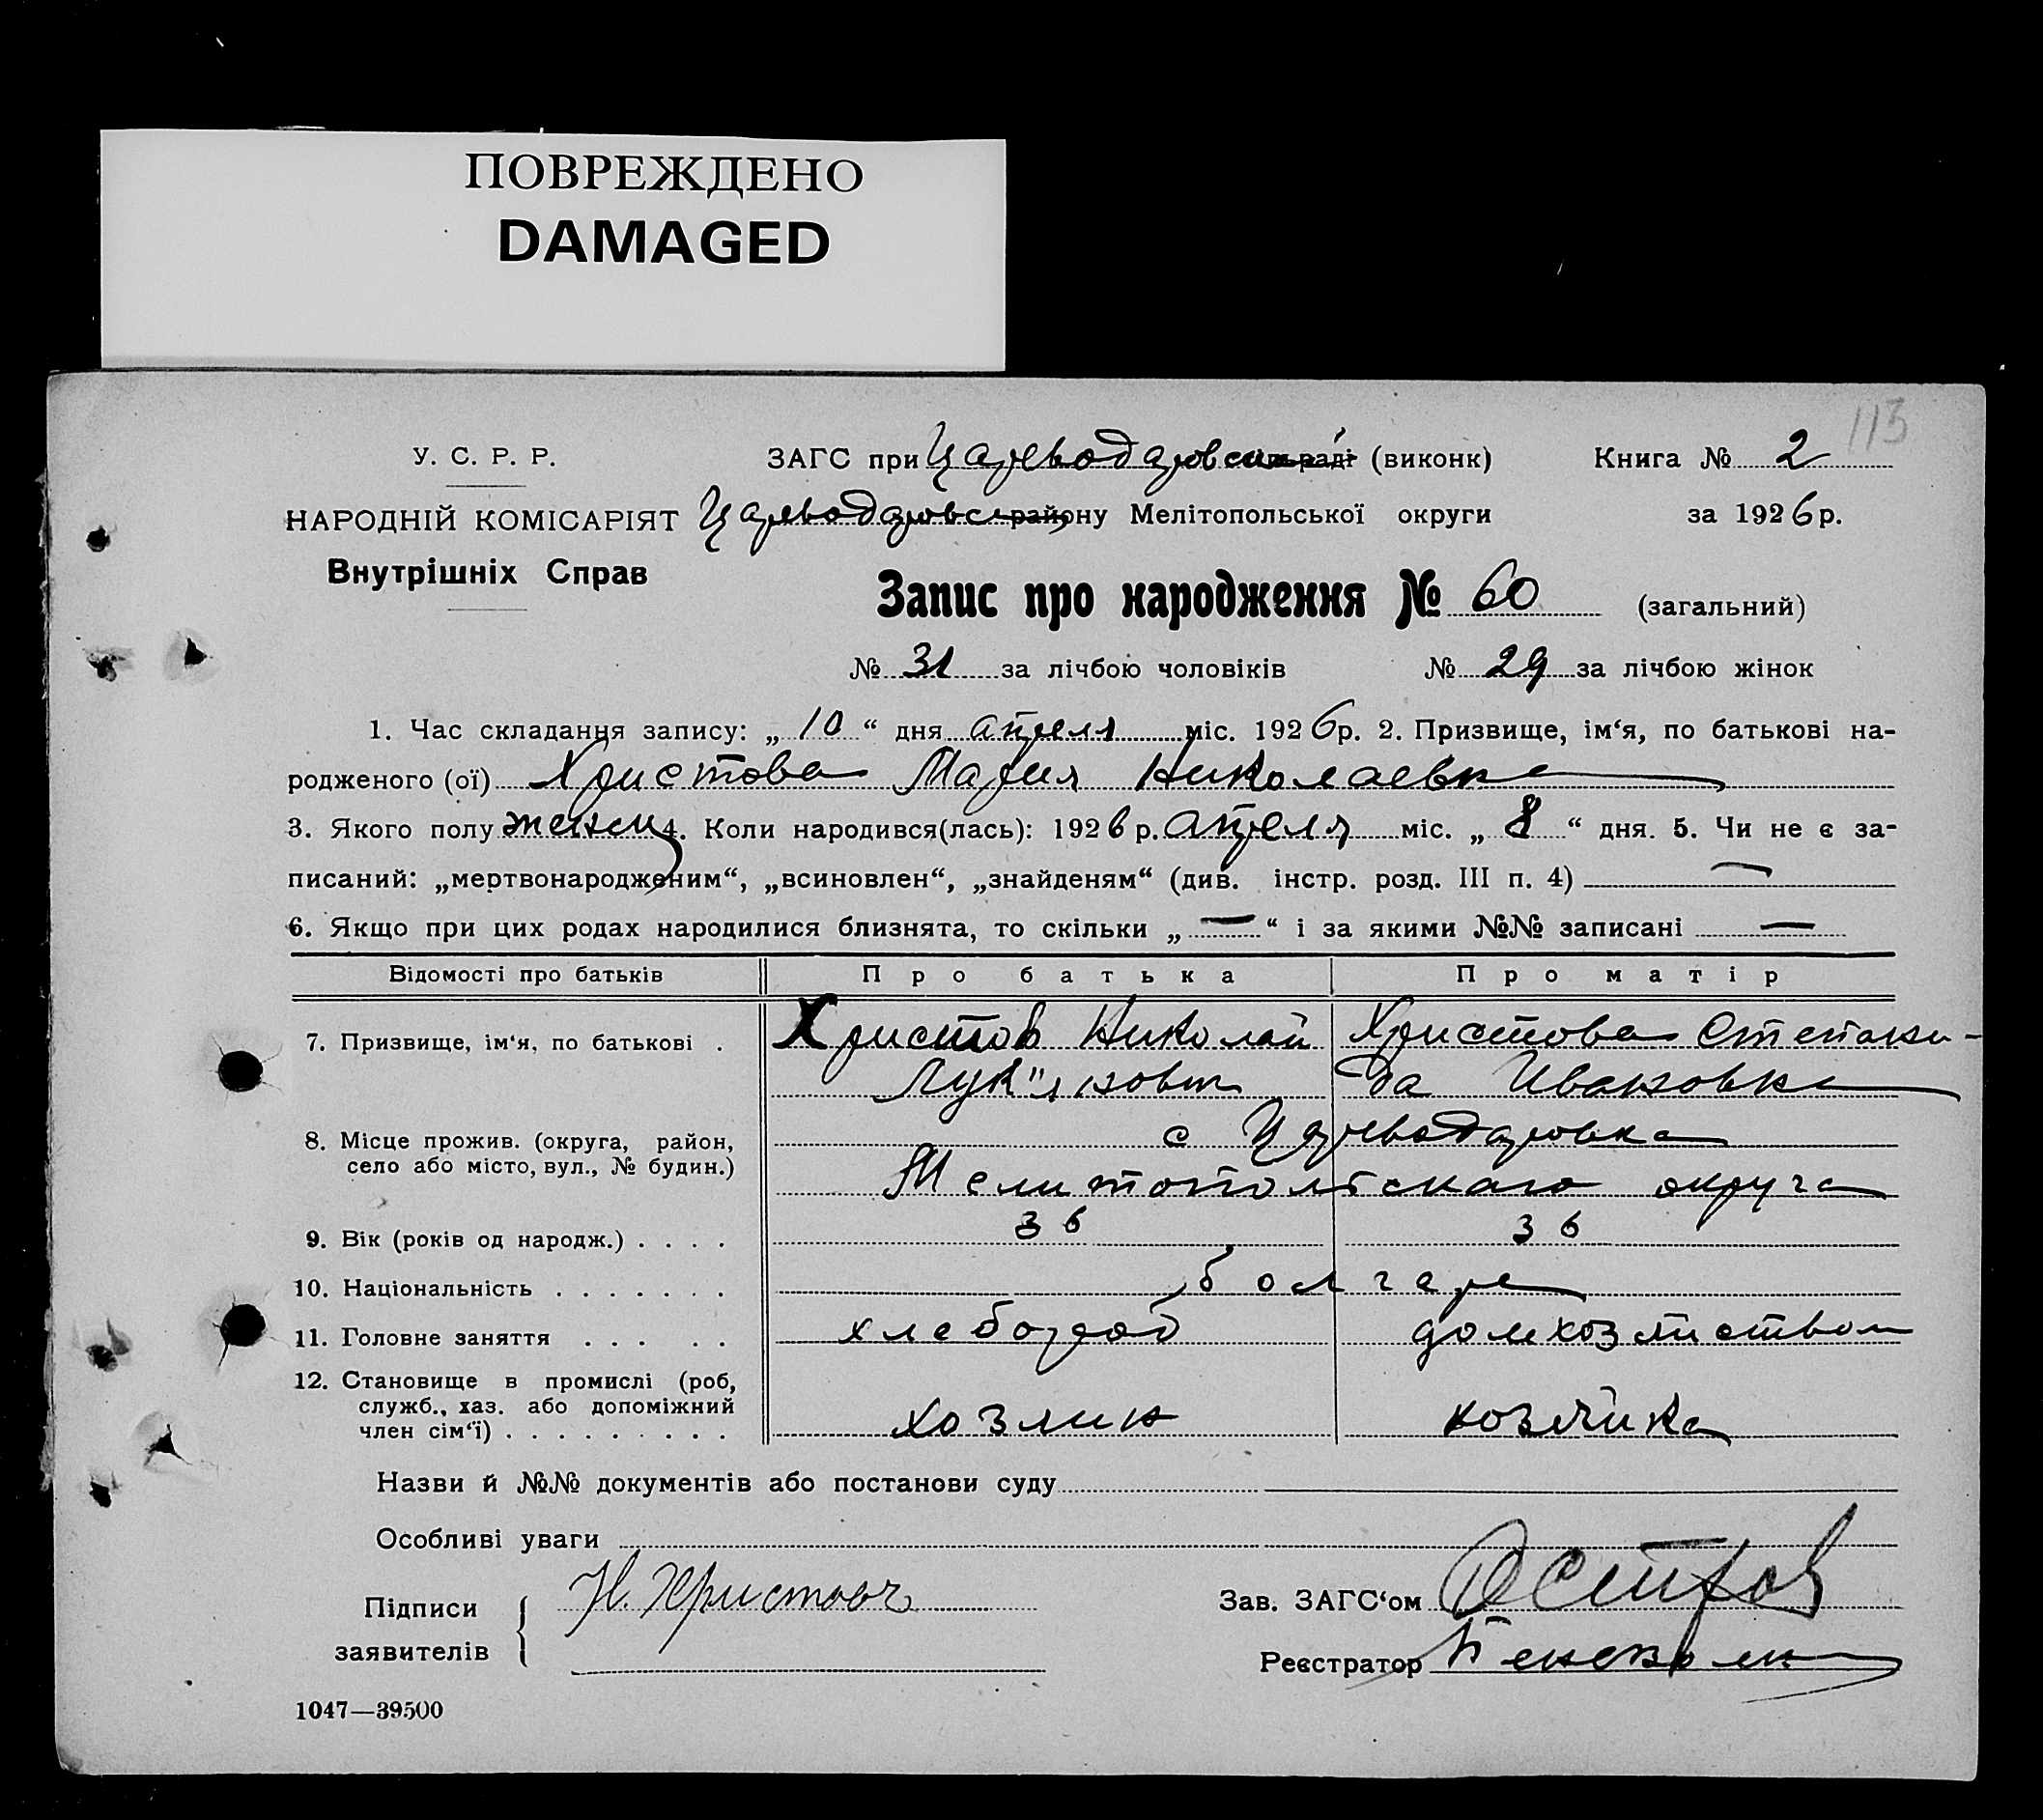 ПОВРЕЖДЕНО
DAMAGED
113
У. С. Р. Р. ЗАГС при Цареводаровськ раді (виконк) Книга № 2
НАРОДНІЙ КОМІСАРІЯТ Цареводаровск району Мелітопольської округи за 1926 р.
Внутрішніх Справ
Запис про народження № 60 (загальний)
№ 31 за лічбою чоловіків № 29 за лічбою жінок
1. Час складання запису: „ 10 “ дня апреля міс. 1926 р. 2. Призвище, ім‘я, по батькові на-
родженого (ої) Христова Мария Николаевна
3. Якого полу женск 4. Коли народився(лась): 1926 р. апреля міс. „ 8 “ дня. 5. Чи не є за-
писаний: „мертвонародженим“, „всиновлен“, „знайденям“ (див. інстр. розд. III п. 4) —
6. Якщо при цих родах народилися близнята, то скільки „ — “ і за якими №№ записані —
Відомості про батьків Про батька Про матір
7. Призвище, ім‘я, по батькові . Христов Николай Христова Степани-
Лук"янович да Ивановна
8. Місце прожив. (округа, район, с Цареводаровка
село або місто, вул., № будин.) Мелитопольскаго округа
9. Вік (років од народж.) . . . . 36 36
10. Національність . . . . . . . болгаре
11. Головне заняття . . . . . хлебороб домхозяйством
12. Становище в промислі (роб,
служб., хаз. або допоміжний
член сім‘ї) . . . . . . . . . хозяин хозяйка
Назви й №№ документів або постанови суду
Особливі уваги
Підписи Н. Христовъ Зав. ЗАГС‘ом
заявителів Реєстратор
1047—39500